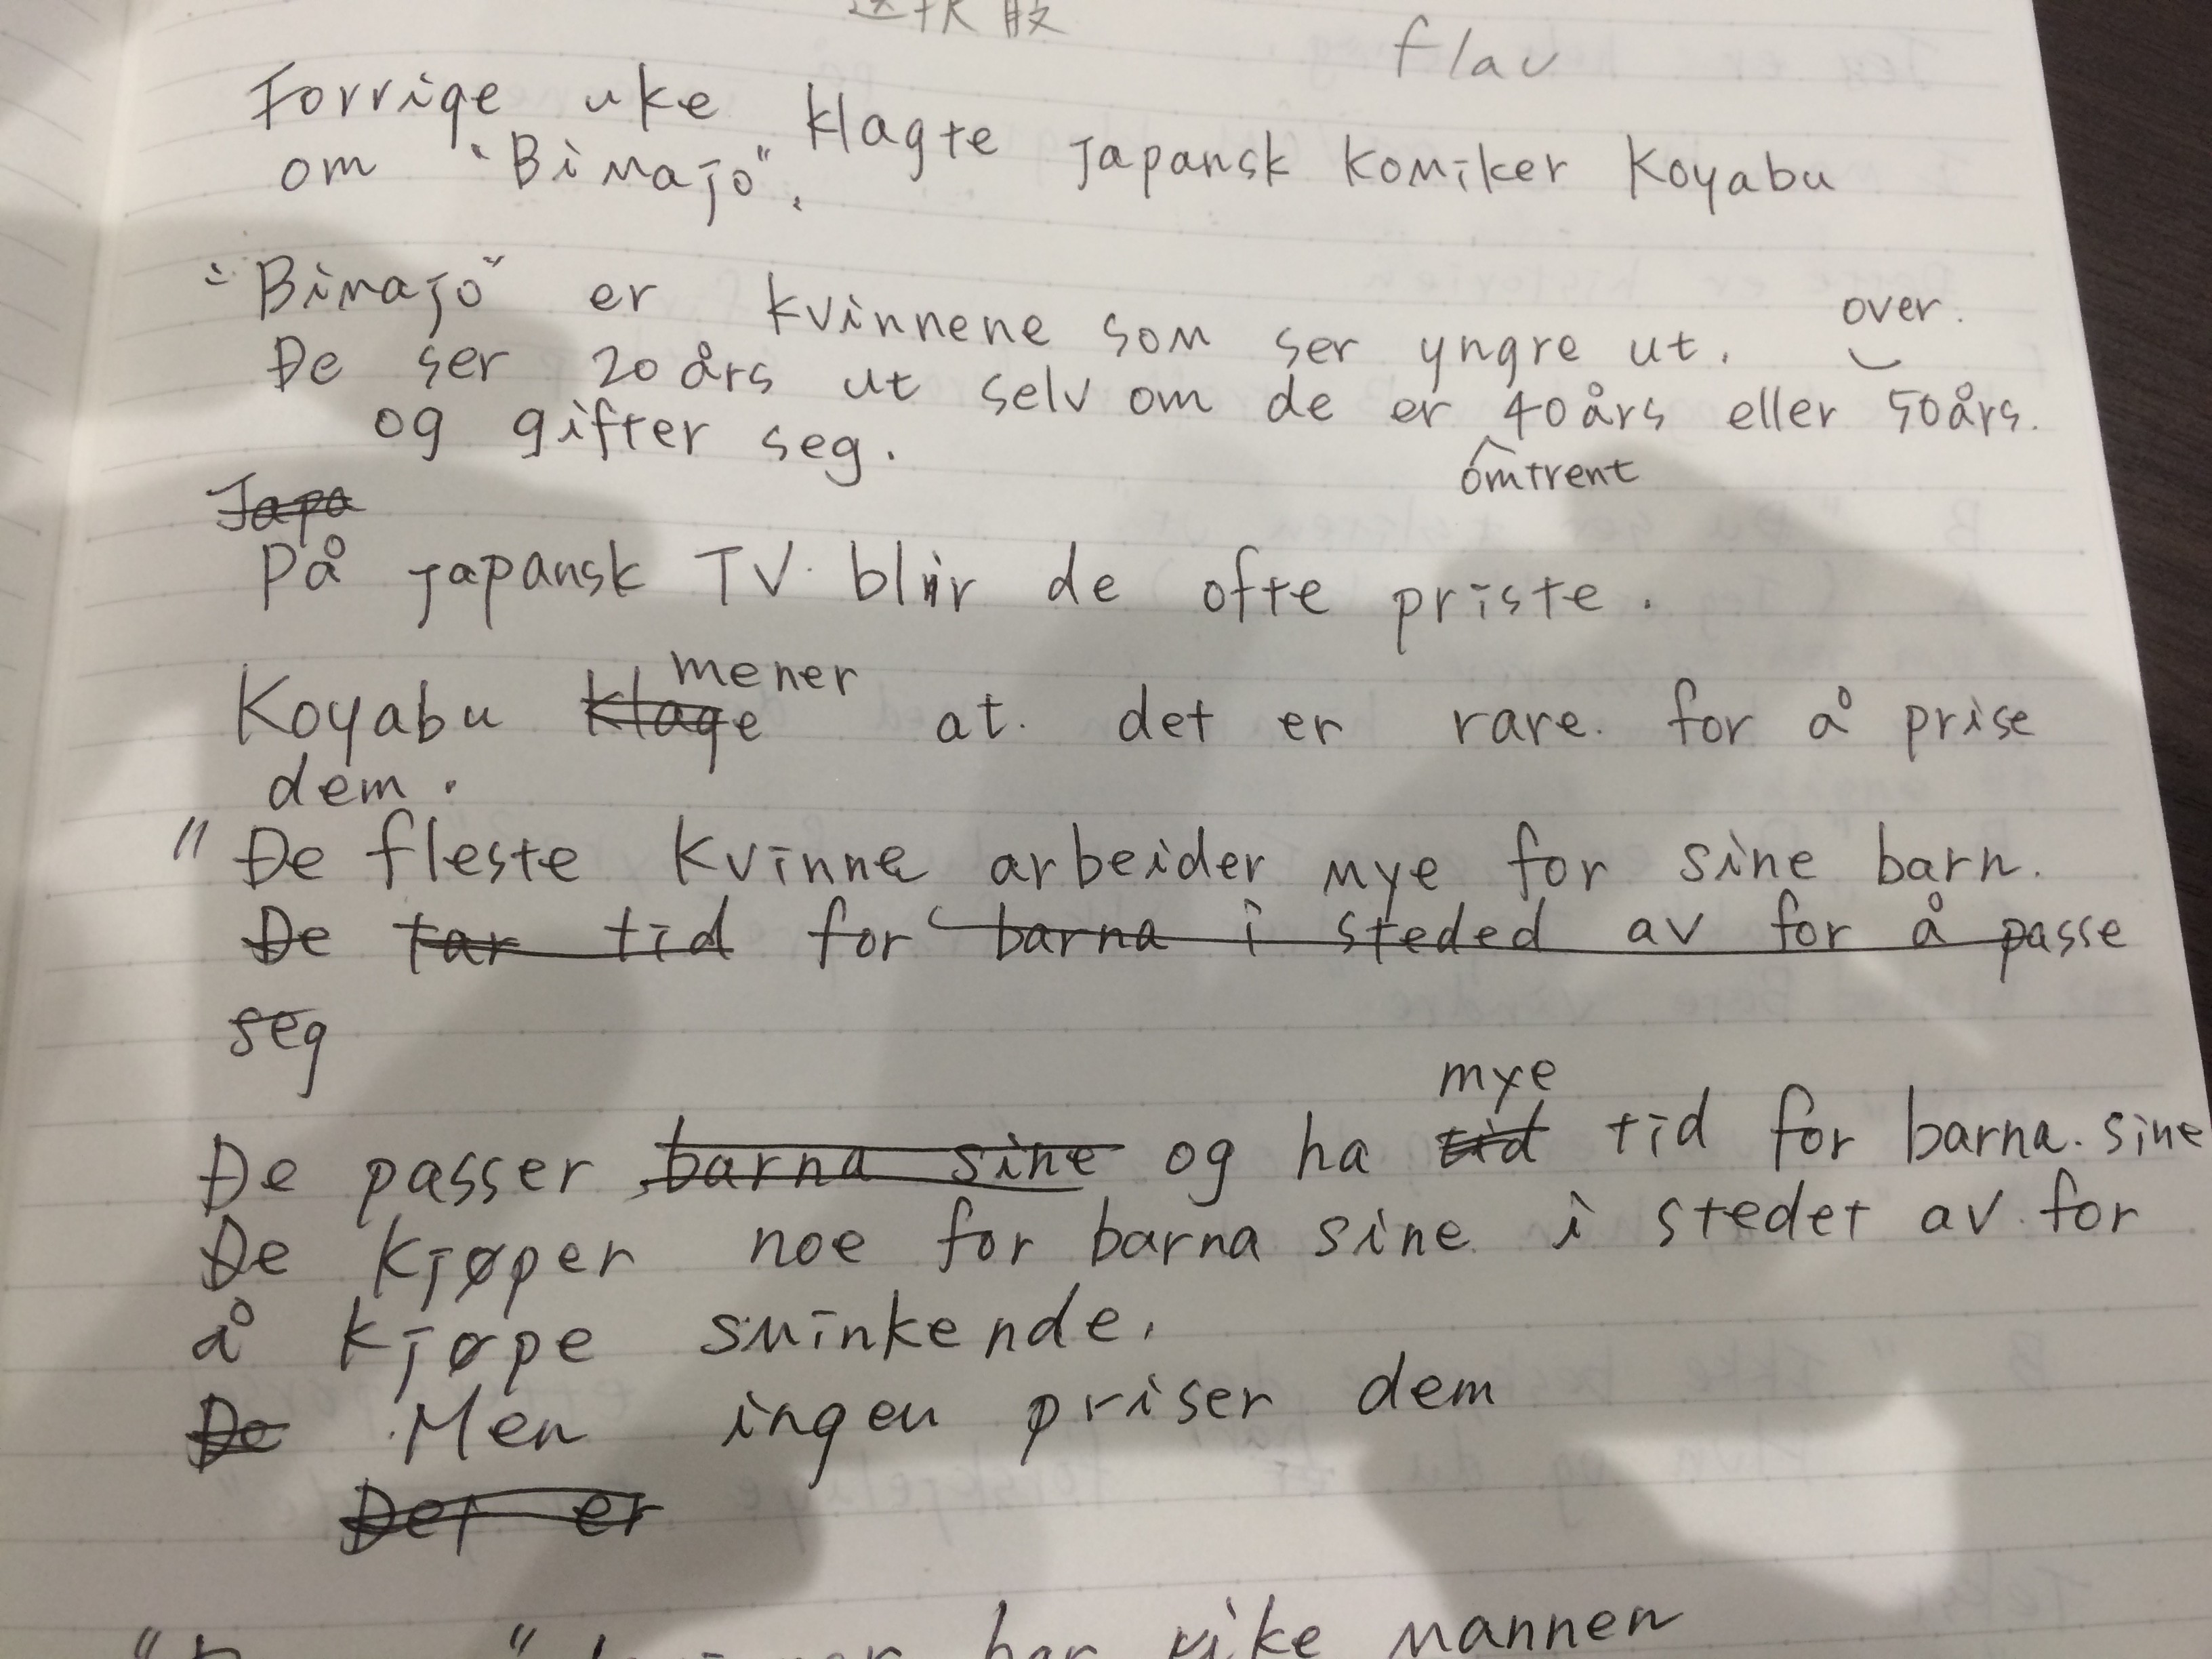 flau
Forrige uke klagte Japansk komiker Koyabu
om "Bimajo".
"Bimajo" er kvinnene som ser yngre ut.
over.
De ser 20 års ut selv om de er 40 års eller 50 års.
omtrent
og gifter seg.
Japa
På japansk TV blir de ofte priste.
mener
Koyabu klage at det er rare for å prise
dem.
"De fleste kvinne arbeider mye for sine barn.
De tar tid for barna i steded av for å passe
seg
mye
De passer barna sine og ha tid tid for barna sine
De kjøper noe for barna sine i stedet av for
å kjøpe sminkende.
De Men ingen priser dem
Det er
har rike mannen